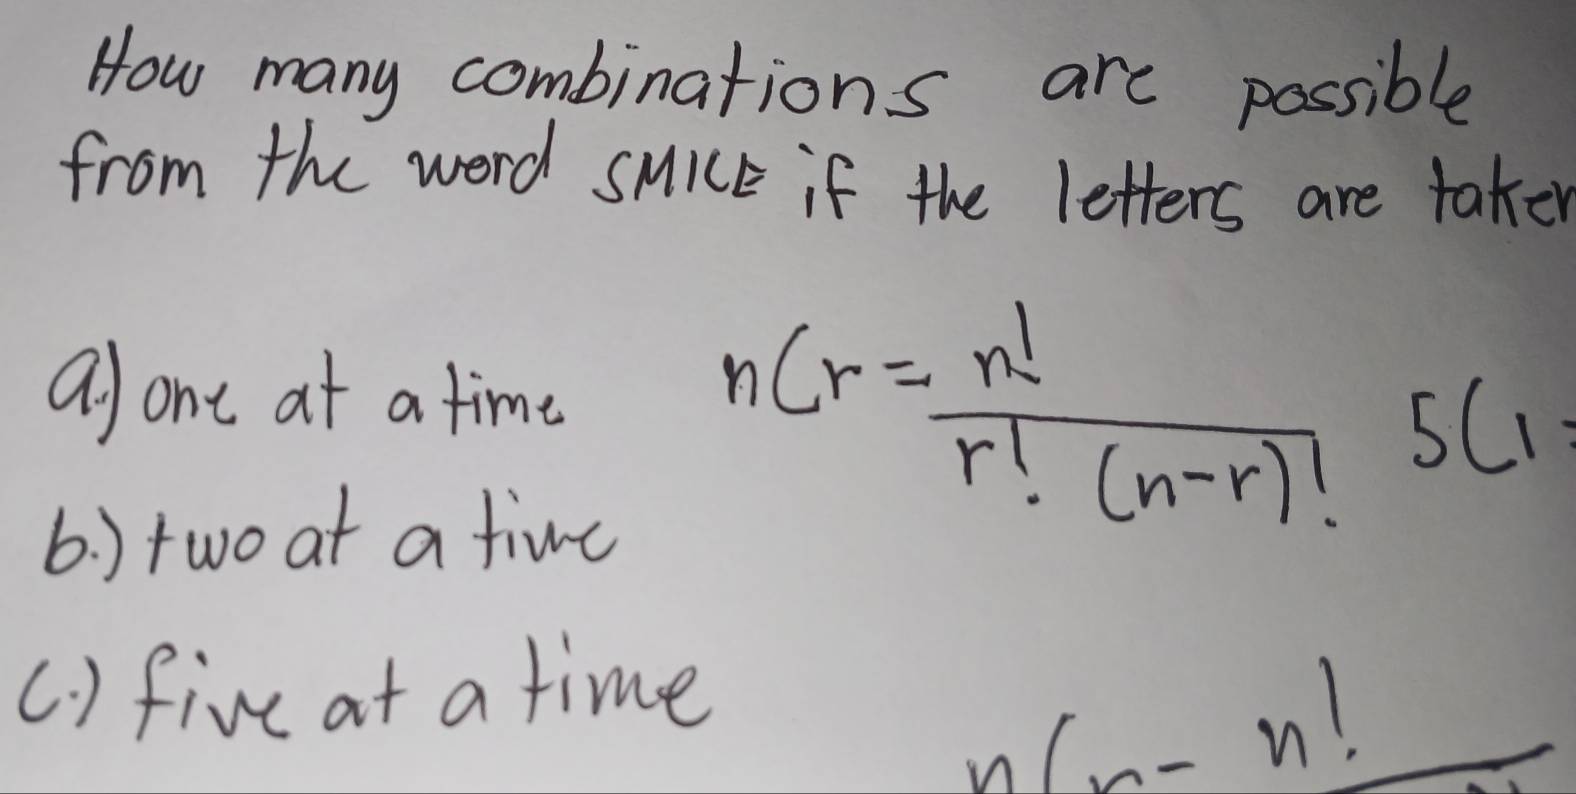 How many combinations are possible
from the word SMILE if the letters are taken
a.) one at a time
nCr = n! / r! (n-r)!
5C1 =
b.) two at a time
c.) five at a time
nCr = n!